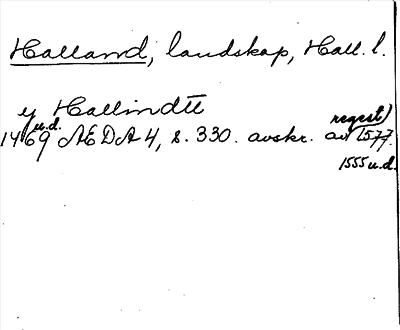 Halland, landskap, Hall. l.
y Hallindtt
1469 u.d. AEDA 4, s. 330. avskr. av 1577.
regest)
1555 u.d.